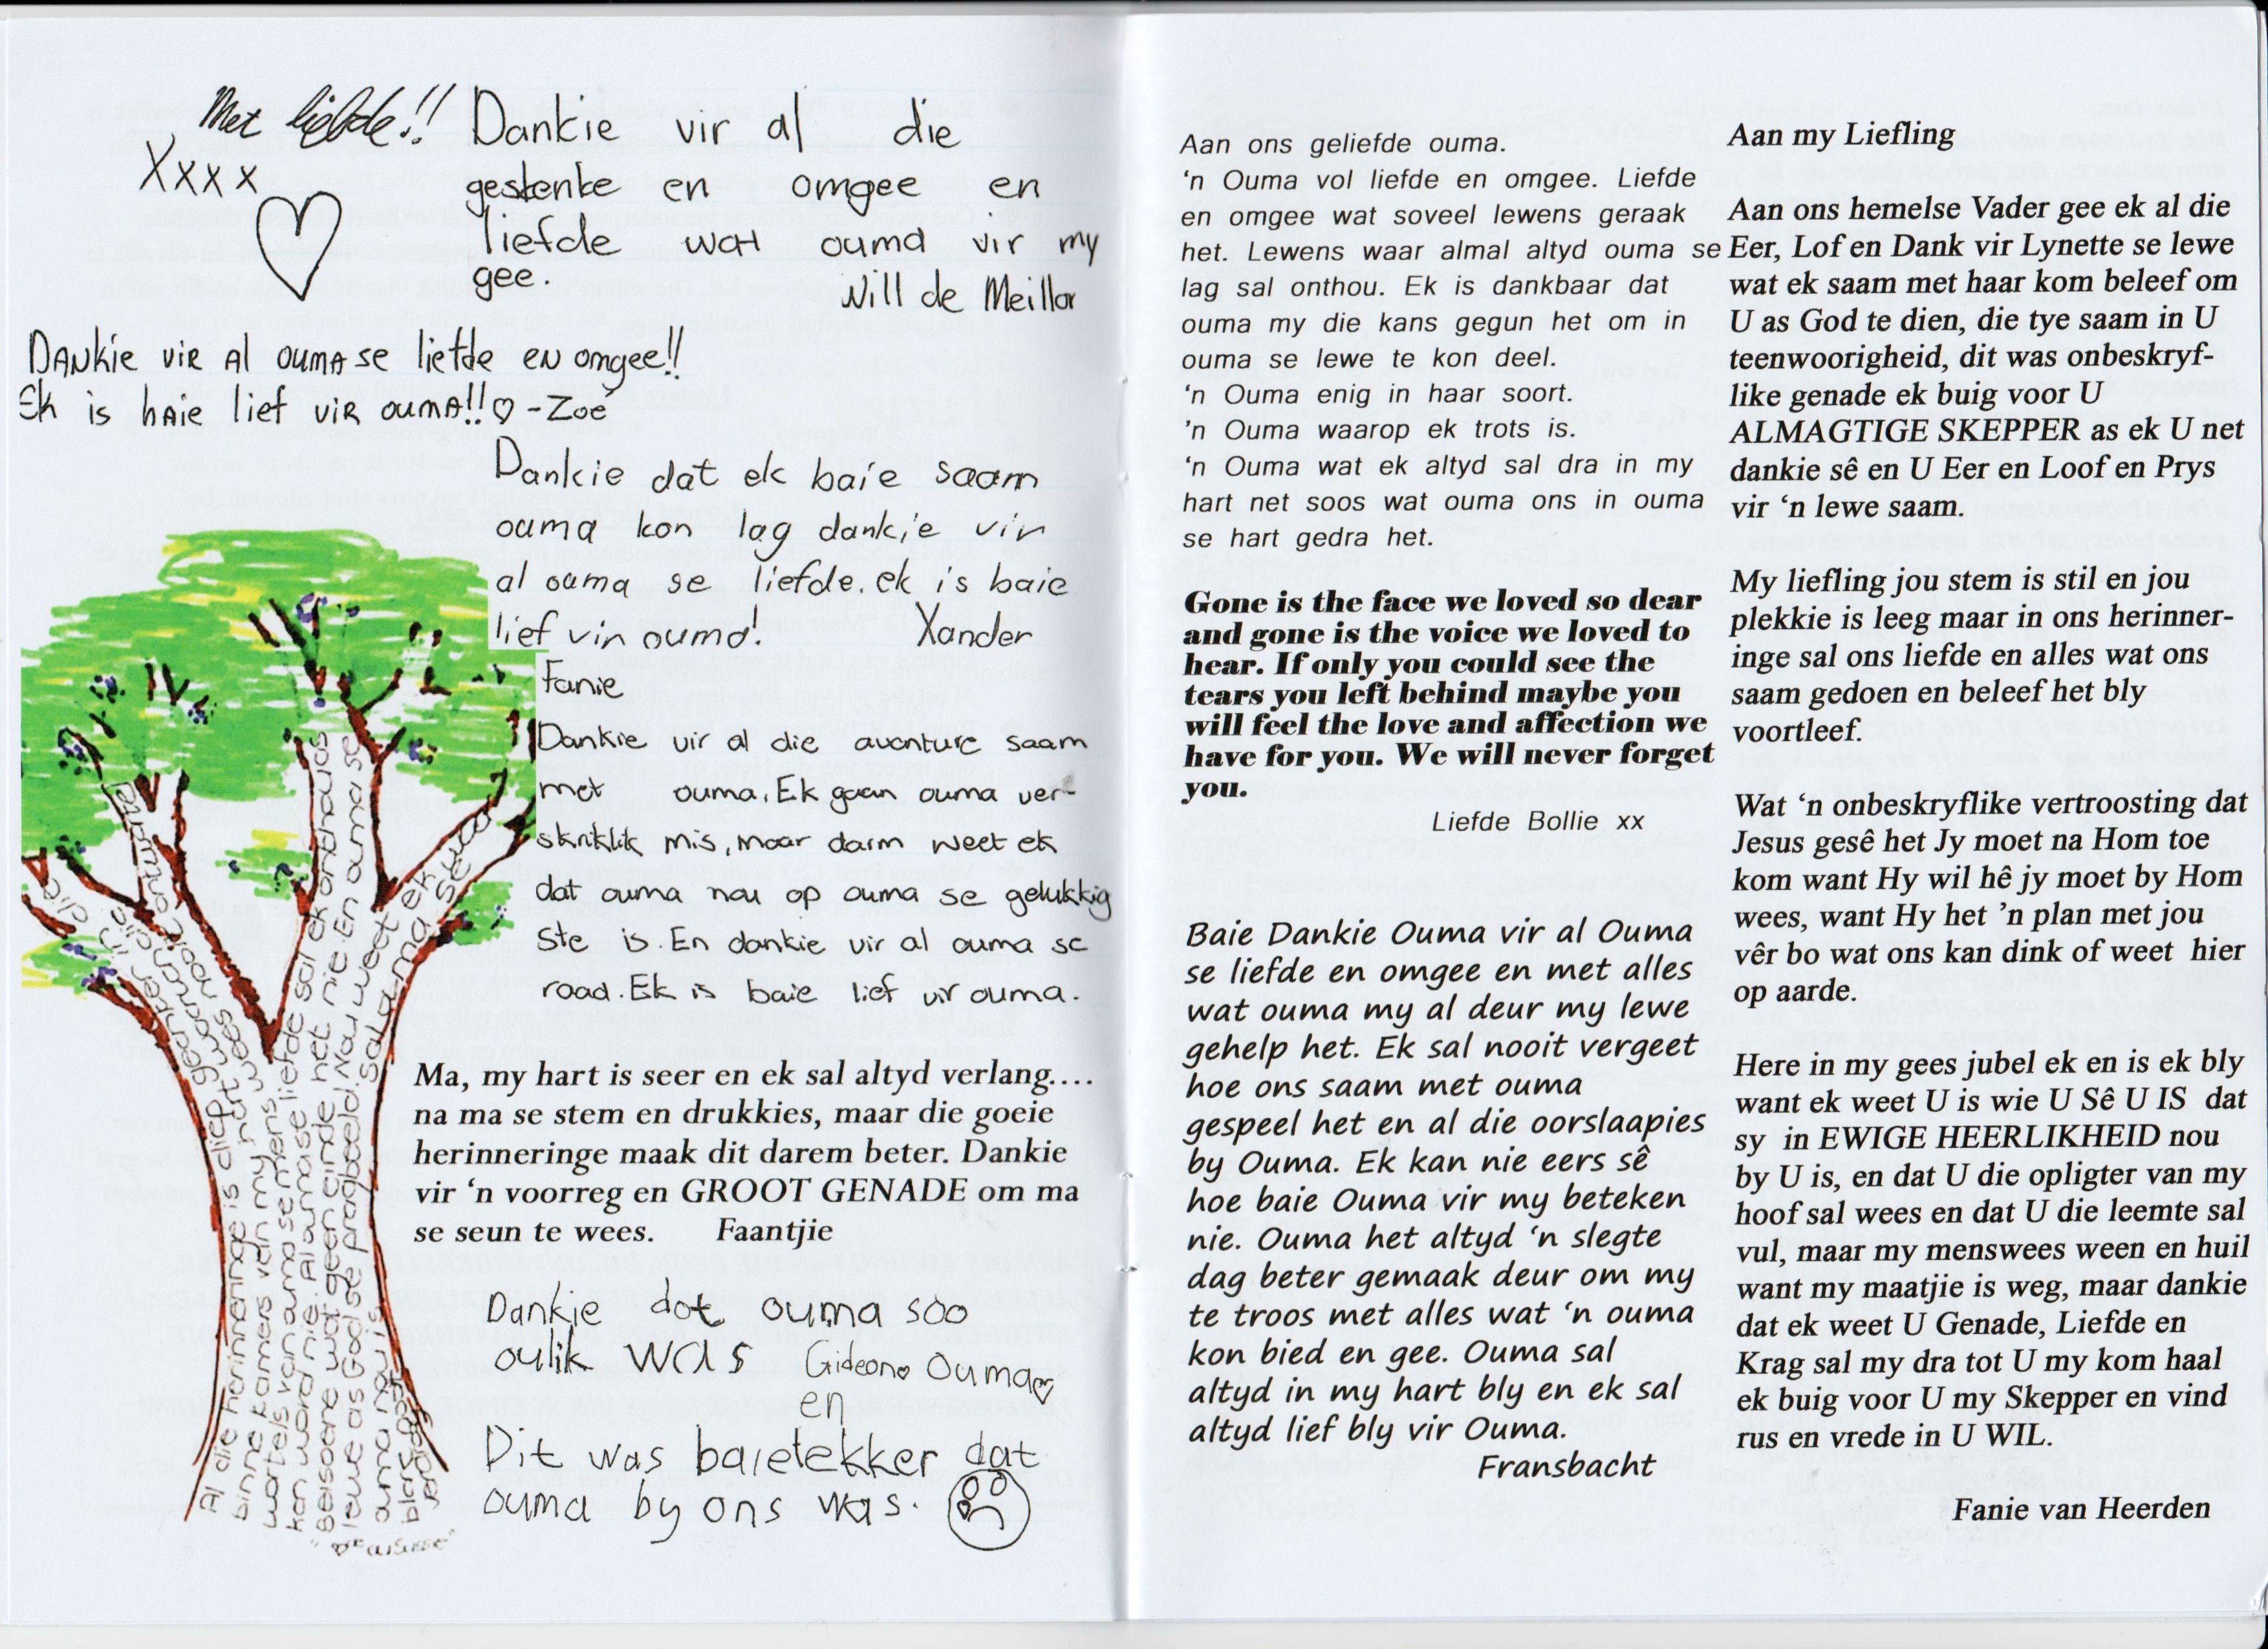 Met liefde!!
Xxxx
Dankie vir al die
geskenke en omgee en
liefde wat ouma vir my
gee.
Will de Meillor
DANKIE VIR Al OUMA SE liefde EN omgee!!
Ek is bAie lief VIR OUMA!!♡ -Zoë
Dankie dat ek baie saam
ouma kon lag dankie vir
al ouma se liefde. ek is baie
lief vir ouma!
Xander
Fanie
Dankie vir al die avonture saam
met ouma. Ek gaan ouma ver-
skriklik mis, maar darm weet ek
dat ouma nou op ouma se gelukkig
ste is. En dankie vir al ouma se
raad. Ek is baie lief vir ouma.
Al die herinneringe is diep geanker in die
binne kamers van my hart waarvan die
wortels van ouma se mens wees nooit ontwortel
kan word nie. Al ouma se liefde sal ek onthou as
Beisoere wat geen einde het nie. En ouma se
lewe as God se pragbeeld. Nou weet ek
ouma nou is sal ouma se
blare
Ma, my hart is seer en ek sal altyd verlang....
na ma se stem en drukkies, maar die goeie
herinneringe maak dit darem beter. Dankie
vir ‘n voorreg en GROOT GENADE om ma
se seun te wees. Faantjie
Dankie dat ouma soo
oulik was Gideon♡ Ouma♡
en
Dit was baielekker dat
ouma by ons was.
Aan ons geliefde ouma.
‘n Ouma vol liefde en omgee. Liefde
en omgee wat soveel lewens geraak
het. Lewens waar almal altyd ouma se
lag sal onthou. Ek is dankbaar dat
ouma my die kans gegun het om in
ouma se lewe te kon deel.
‘n Ouma enig in haar soort.
’n Ouma waarop ek trots is.
‘n Ouma wat ek altyd sal dra in my
hart net soos wat ouma ons in ouma
se hart gedra het.
Gone is the face we loved so dear
and gone is the voice we loved to
hear. If only you could see the
tears you left behind maybe you
will feel the love and affection we
have for you. We will never forget
you.
Liefde Bollie xx
Baie Dankie Ouma vir al Ouma
se liefde en omgee en met alles
wat ouma my al deur my lewe
gehelp het. Ek sal nooit vergeet
hoe ons saam met ouma
gespeel het en al die oorslaapies
by Ouma. Ek kan nie eers sê
hoe baie Ouma vir my beteken
nie. Ouma het altyd ‘n slegte
dag beter gemaak deur om my
te troos met alles wat ‘n ouma
kon bied en gee. Ouma sal
altyd in my hart bly en ek sal
altyd lief bly vir Ouma.
Fransbacht
Aan my Liefling
Aan ons hemelse Vader gee ek al die
Eer, Lof en Dank vir Lynette se lewe
wat ek saam met haar kom beleef om
U as God te dien, die tye saam in U
teenwoorigheid, dit was onbeskryf-
like genade ek buig voor U
ALMAGTIGE SKEPPER as ek U net
dankie sê en U Eer en Loof en Prys
vir ‘n lewe saam.
My liefling jou stem is stil en jou
plekkie is leeg maar in ons herinner-
inge sal ons liefde en alles wat ons
saam gedoen en beleef het bly
voortleef.
Wat ‘n onbeskryflike vertroosting dat
Jesus gesê het Jy moet na Hom toe
kom want Hy wil hê jy moet by Hom
wees, want Hy het ’n plan met jou
vêr bo wat ons kan dink of weet hier
op aarde.
Here in my gees jubel ek en is ek bly
want ek weet U is wie U Sê U IS dat
sy in EWIGE HEERLIKHEID nou
by U is, en dat U die opligter van my
hoof sal wees en dat U die leemte sal
vul, maar my menswees ween en huil
want my maatjie is weg, maar dankie
dat ek weet U Genade, Liefde en
Krag sal my dra tot U my kom haal
ek buig voor U my Skepper en vind
rus en vrede in U WIL.
Fanie van Heerden